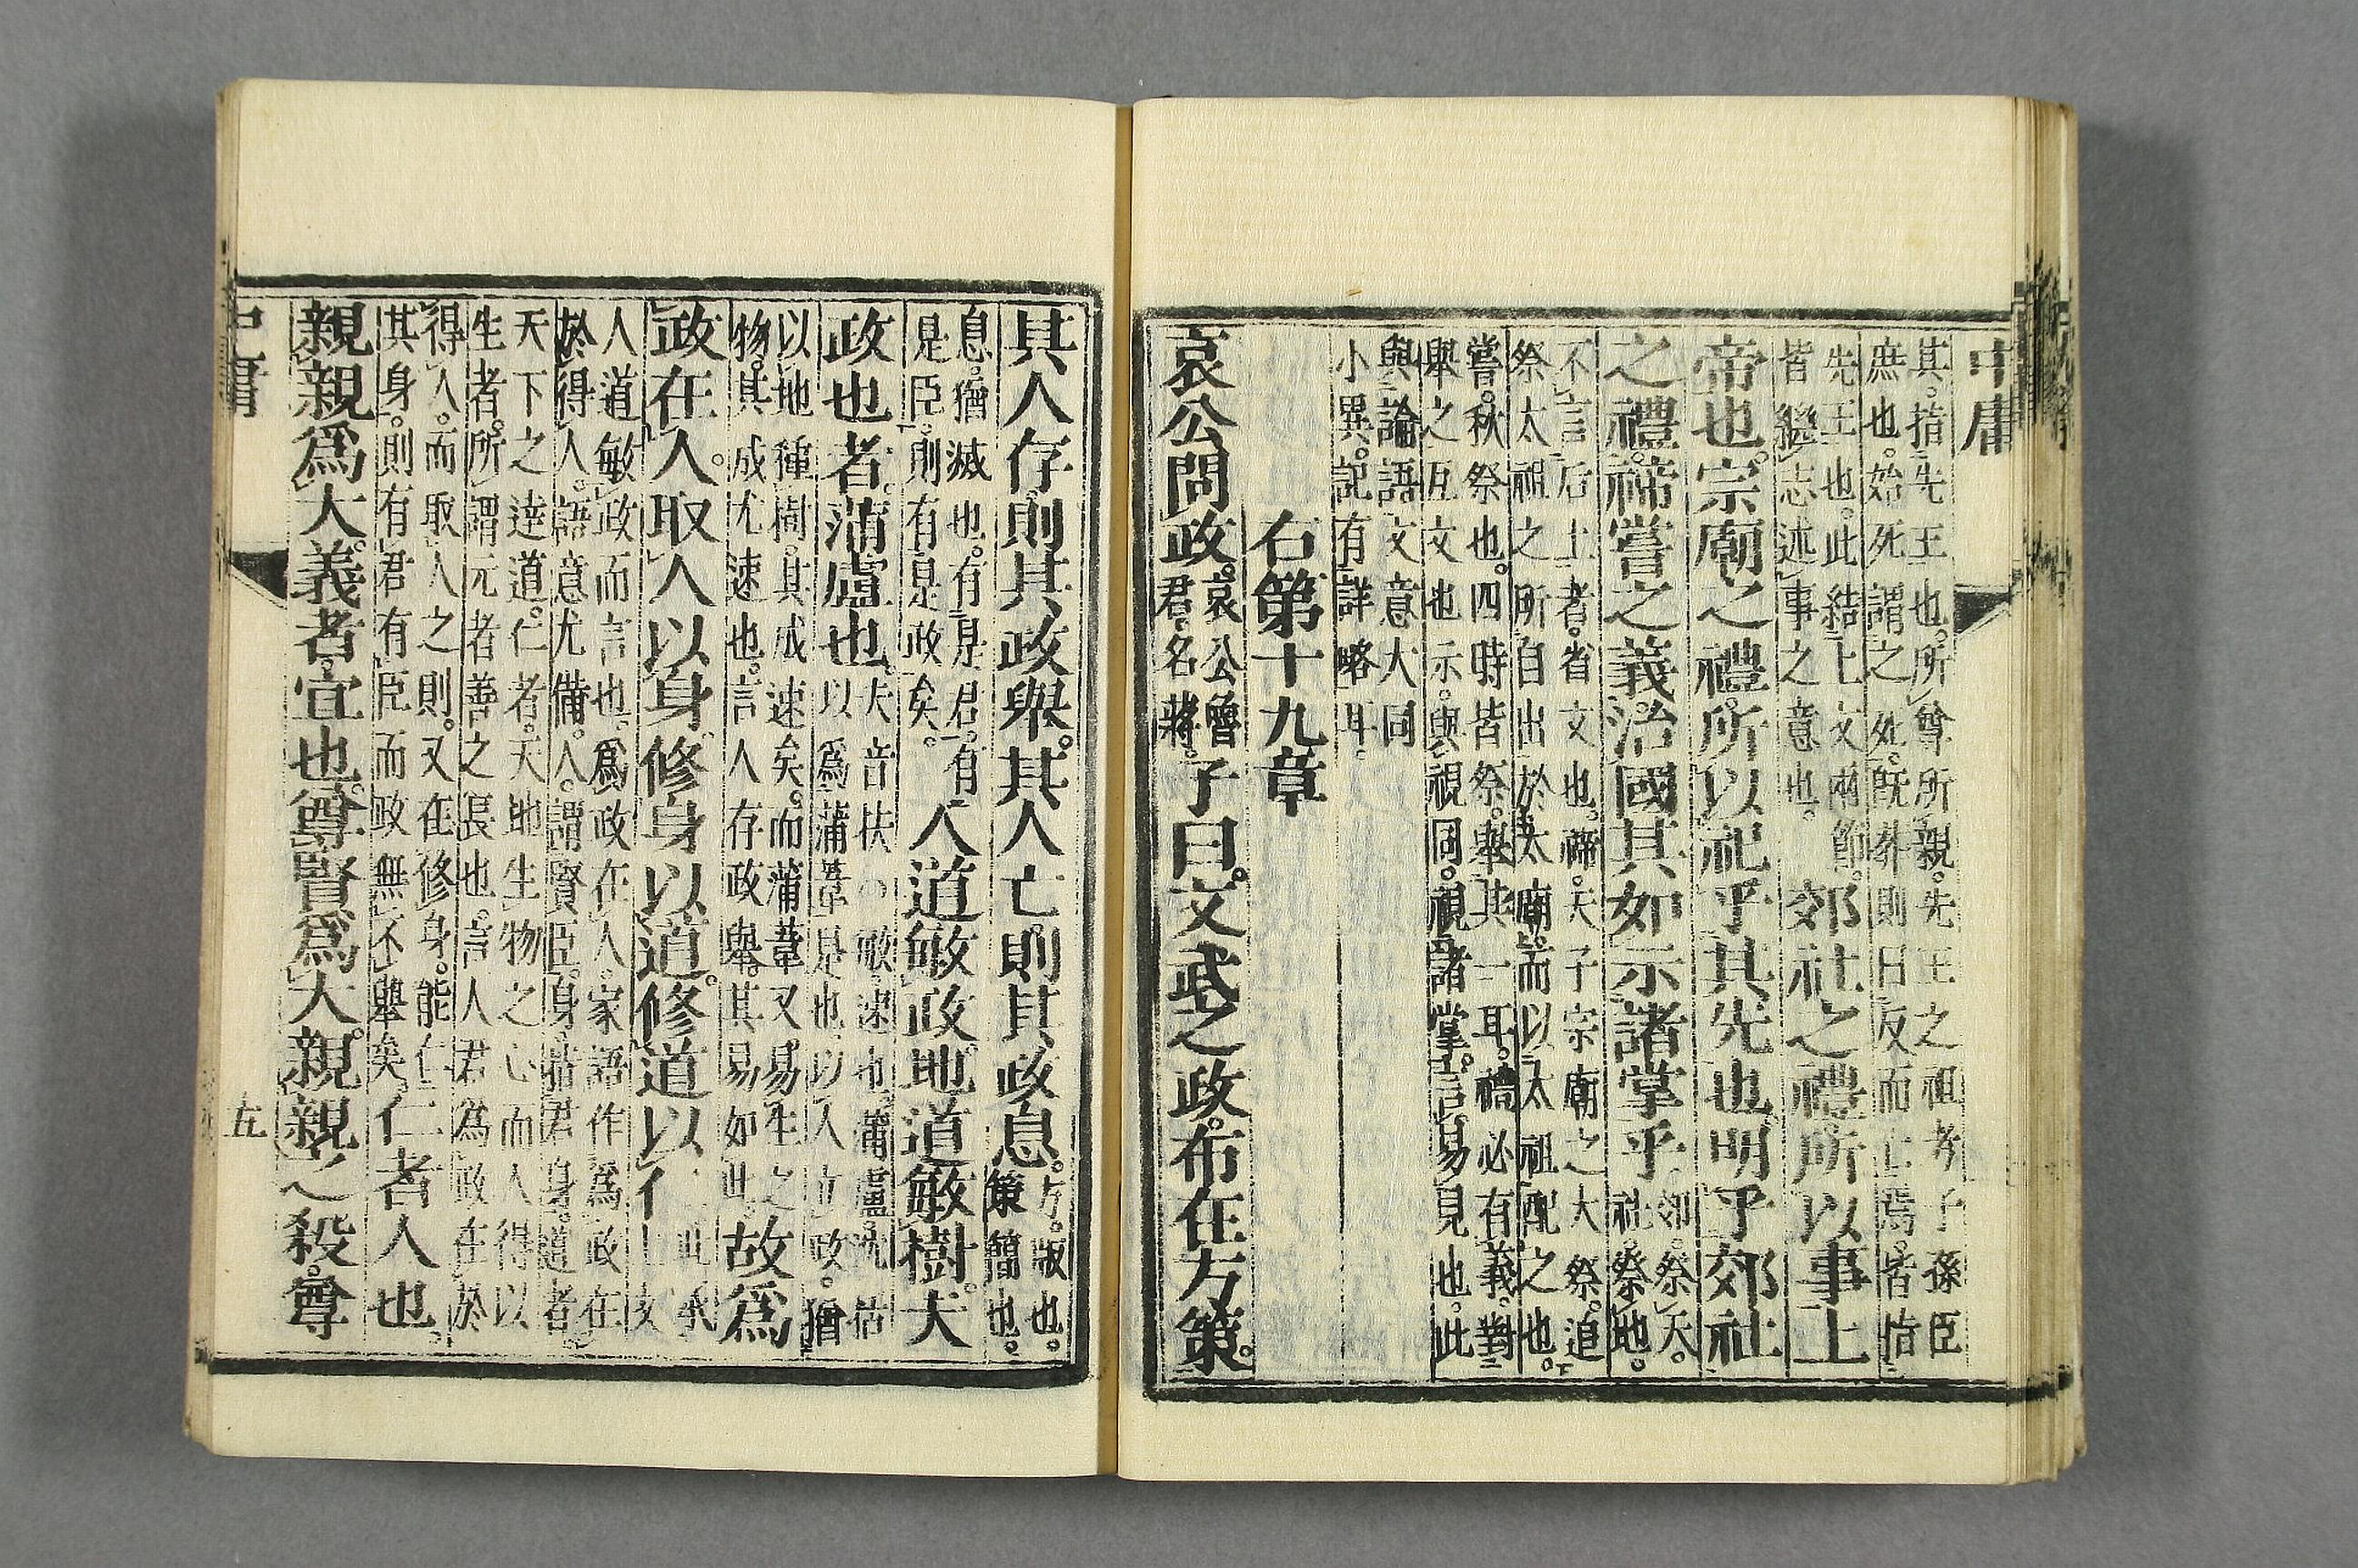 中庸
其指先王也所尊所親先王之祖考子孫臣
庶也始死謂之死既葬則曰反而亡焉皆指
先王也此結上文兩節
皆繼志述事之意也
郊社之禮所以事上
帝也宗廟之禮所以祀乎其先也明乎郊社
之禮禘嘗之義治國其如示諸掌乎
郊祭天
社祭地
不言后土者省文也禘天子宗廟之大祭追
祭太祖之所自出於太廟而以太祖配之也
嘗秋祭也四時皆祭舉其一耳禮必有義對
舉之互文也示與視同視諸掌言易見也此
與論語文意大同
小異記有詳略耳
右第十九章
哀公問政
哀公魯
君名蔣
子曰文武之政布在方策
其人存則其政舉其人亡則其政息
方版也
策簡也
息猶滅也有是君有
是臣則有是政矣
人道敏政地道敏樹夫
政也者蒲盧也
夫音扶○敏速也蒲盧沈括
以爲蒲葦是也以人立政猶
以地種樹其成速矣而蒲葦又易生之
物其成尤速也言人存政舉其易如此
故爲
政在人取人以身修身以道修道以仁
此承
上文
人道敏政而言也爲政在人家語作爲政在
於得人語意尤備人謂賢臣身指君身道者
天下之達道仁者天地生物之心而人得以
生者所謂元者善之長也言人君為政在於
得人而取人之則又在修身能仁
其身則有君有臣而政無不舉矣
仁者人也
親親爲大義者宜也尊賢爲大親親之殺尊
中庸
五